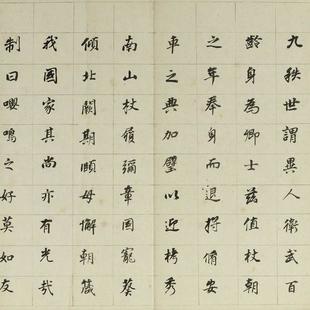 九秩世謂異人衛武百
齡身為卿士茲值杖朝
之年奉身而退將脩安
車之典加璧以迎栲秀
南山杖履彌章國寵葵
傾北闕期頤毋懈朝箴
我國家其尚亦有光哉
制曰嚶鳴之好莫如友